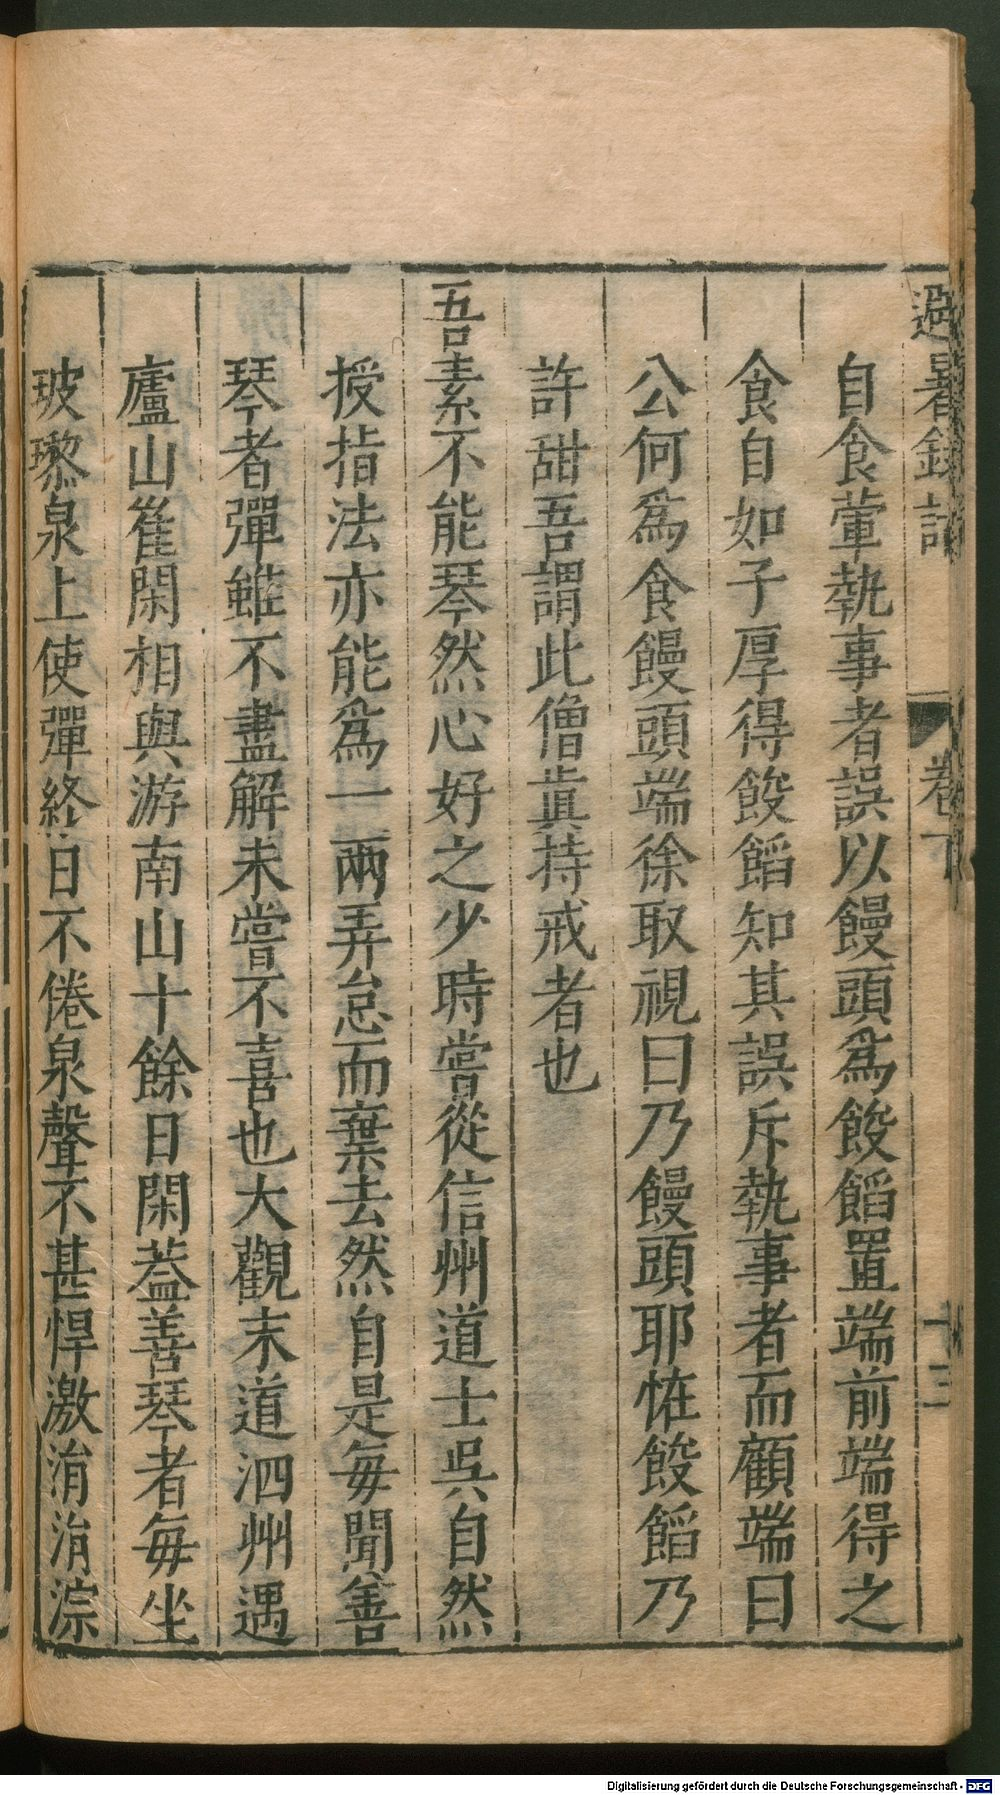 避暑錄話 卷下 十三
自食葷執事者誤以饅頭爲餕饀置端前端得之
食自如子厚得餕饀知其誤斥執事者而顧端曰
公何爲食饅頭端徐取視曰乃饅頭耶恠餕饀乃
許甜吾謂此僧眞持戒者也
吾素不能琴然心好之少時嘗從信州道士吳自然
授指法亦能爲一兩弄怠而棄去然自是每聞善
琴者彈雖不盡解未嘗不喜也大觀末道泗州遇
廬山崔閑相與游南山十餘日閑葢善琴者每坐
玻瓈泉上使彈終日不倦泉聲不甚悍激涓涓淙
Digitalisierung gefördert durch die Deutsche Forschungsgemeinschaft - DFG